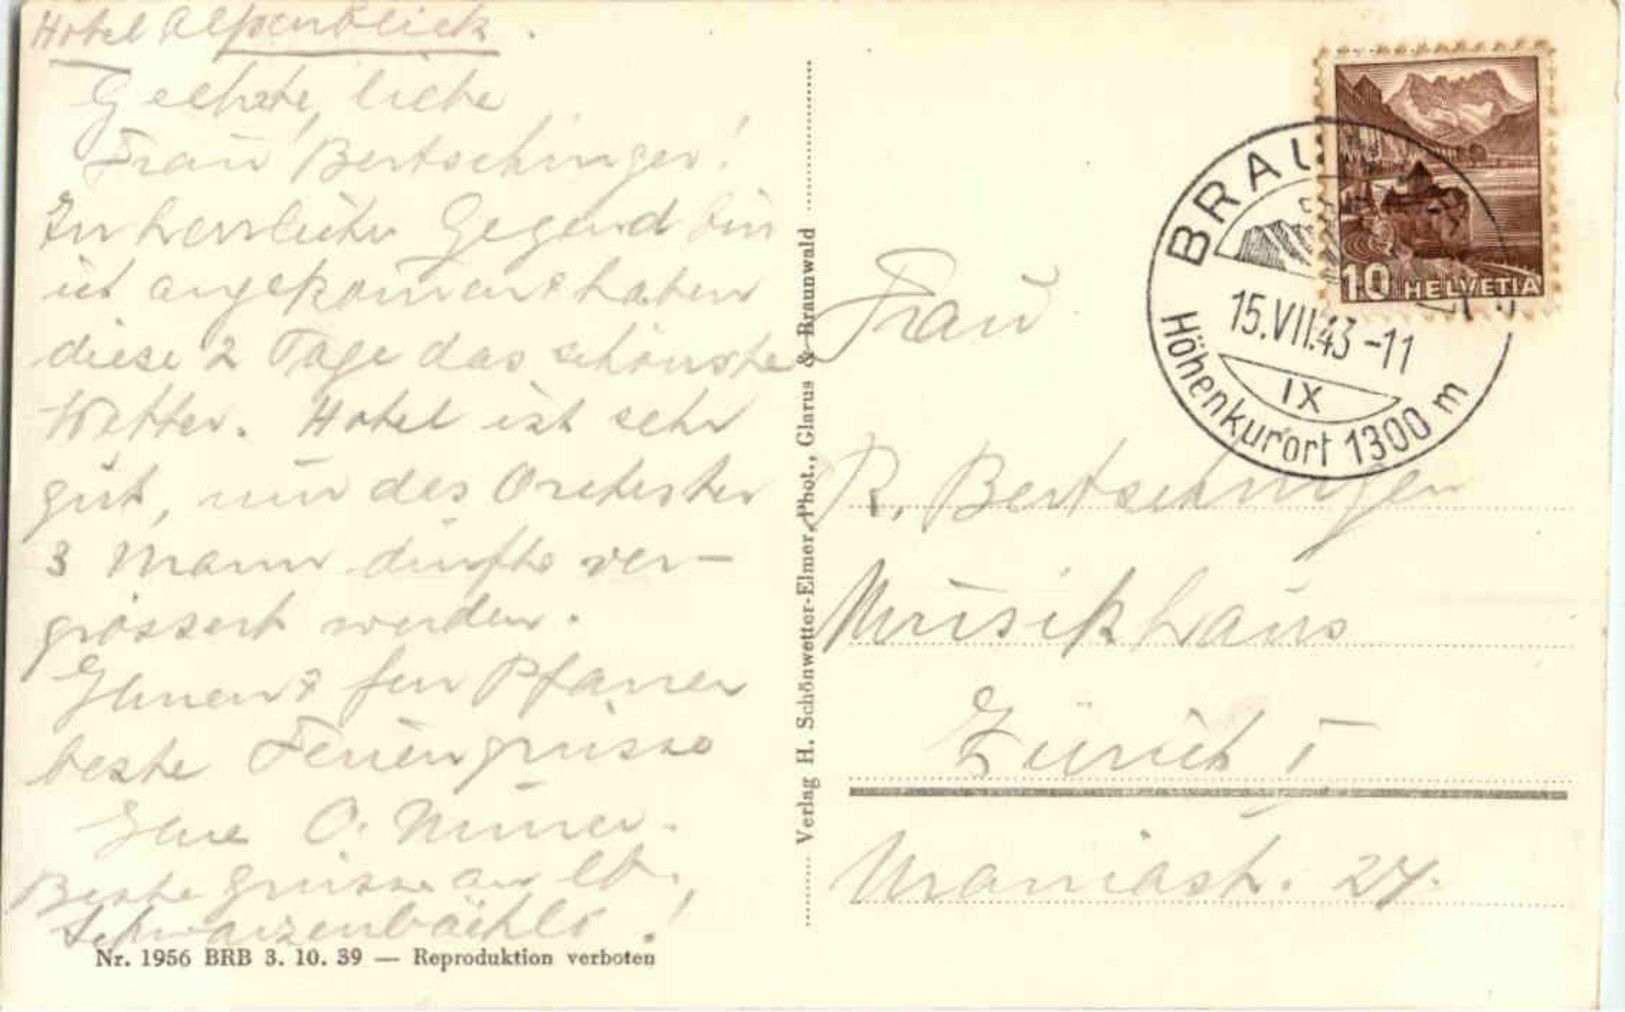 Hotel Alpenblick.
Geehrte, liebe
Frau Bertschinger!
In herrlicher Gegend bin
ich angekommen & haben
diese 2 Tage das schönste
Wetter. Hotel ist sehr
gut, nur das Orchester
3 Mann dürfte ver-
grössert werden.
Ihnen & Pfarrer
beste Feriengrüsse
Ihre O.
Beste Grüsse an lb.
Schwarzenbächlis!
Nr. 1956 BRB 3. 10. 39 — Reproduktion verboten
Verlag H. Schönwetter-Elmer, Phot., Glarus & Braunwald
10 HELVETIA
15.VII.43-11
IX
Höhenkurort 1300 m
Frau
R. Bertschinger
Musikhaus
Zürich 1
Uraniastr. 24.